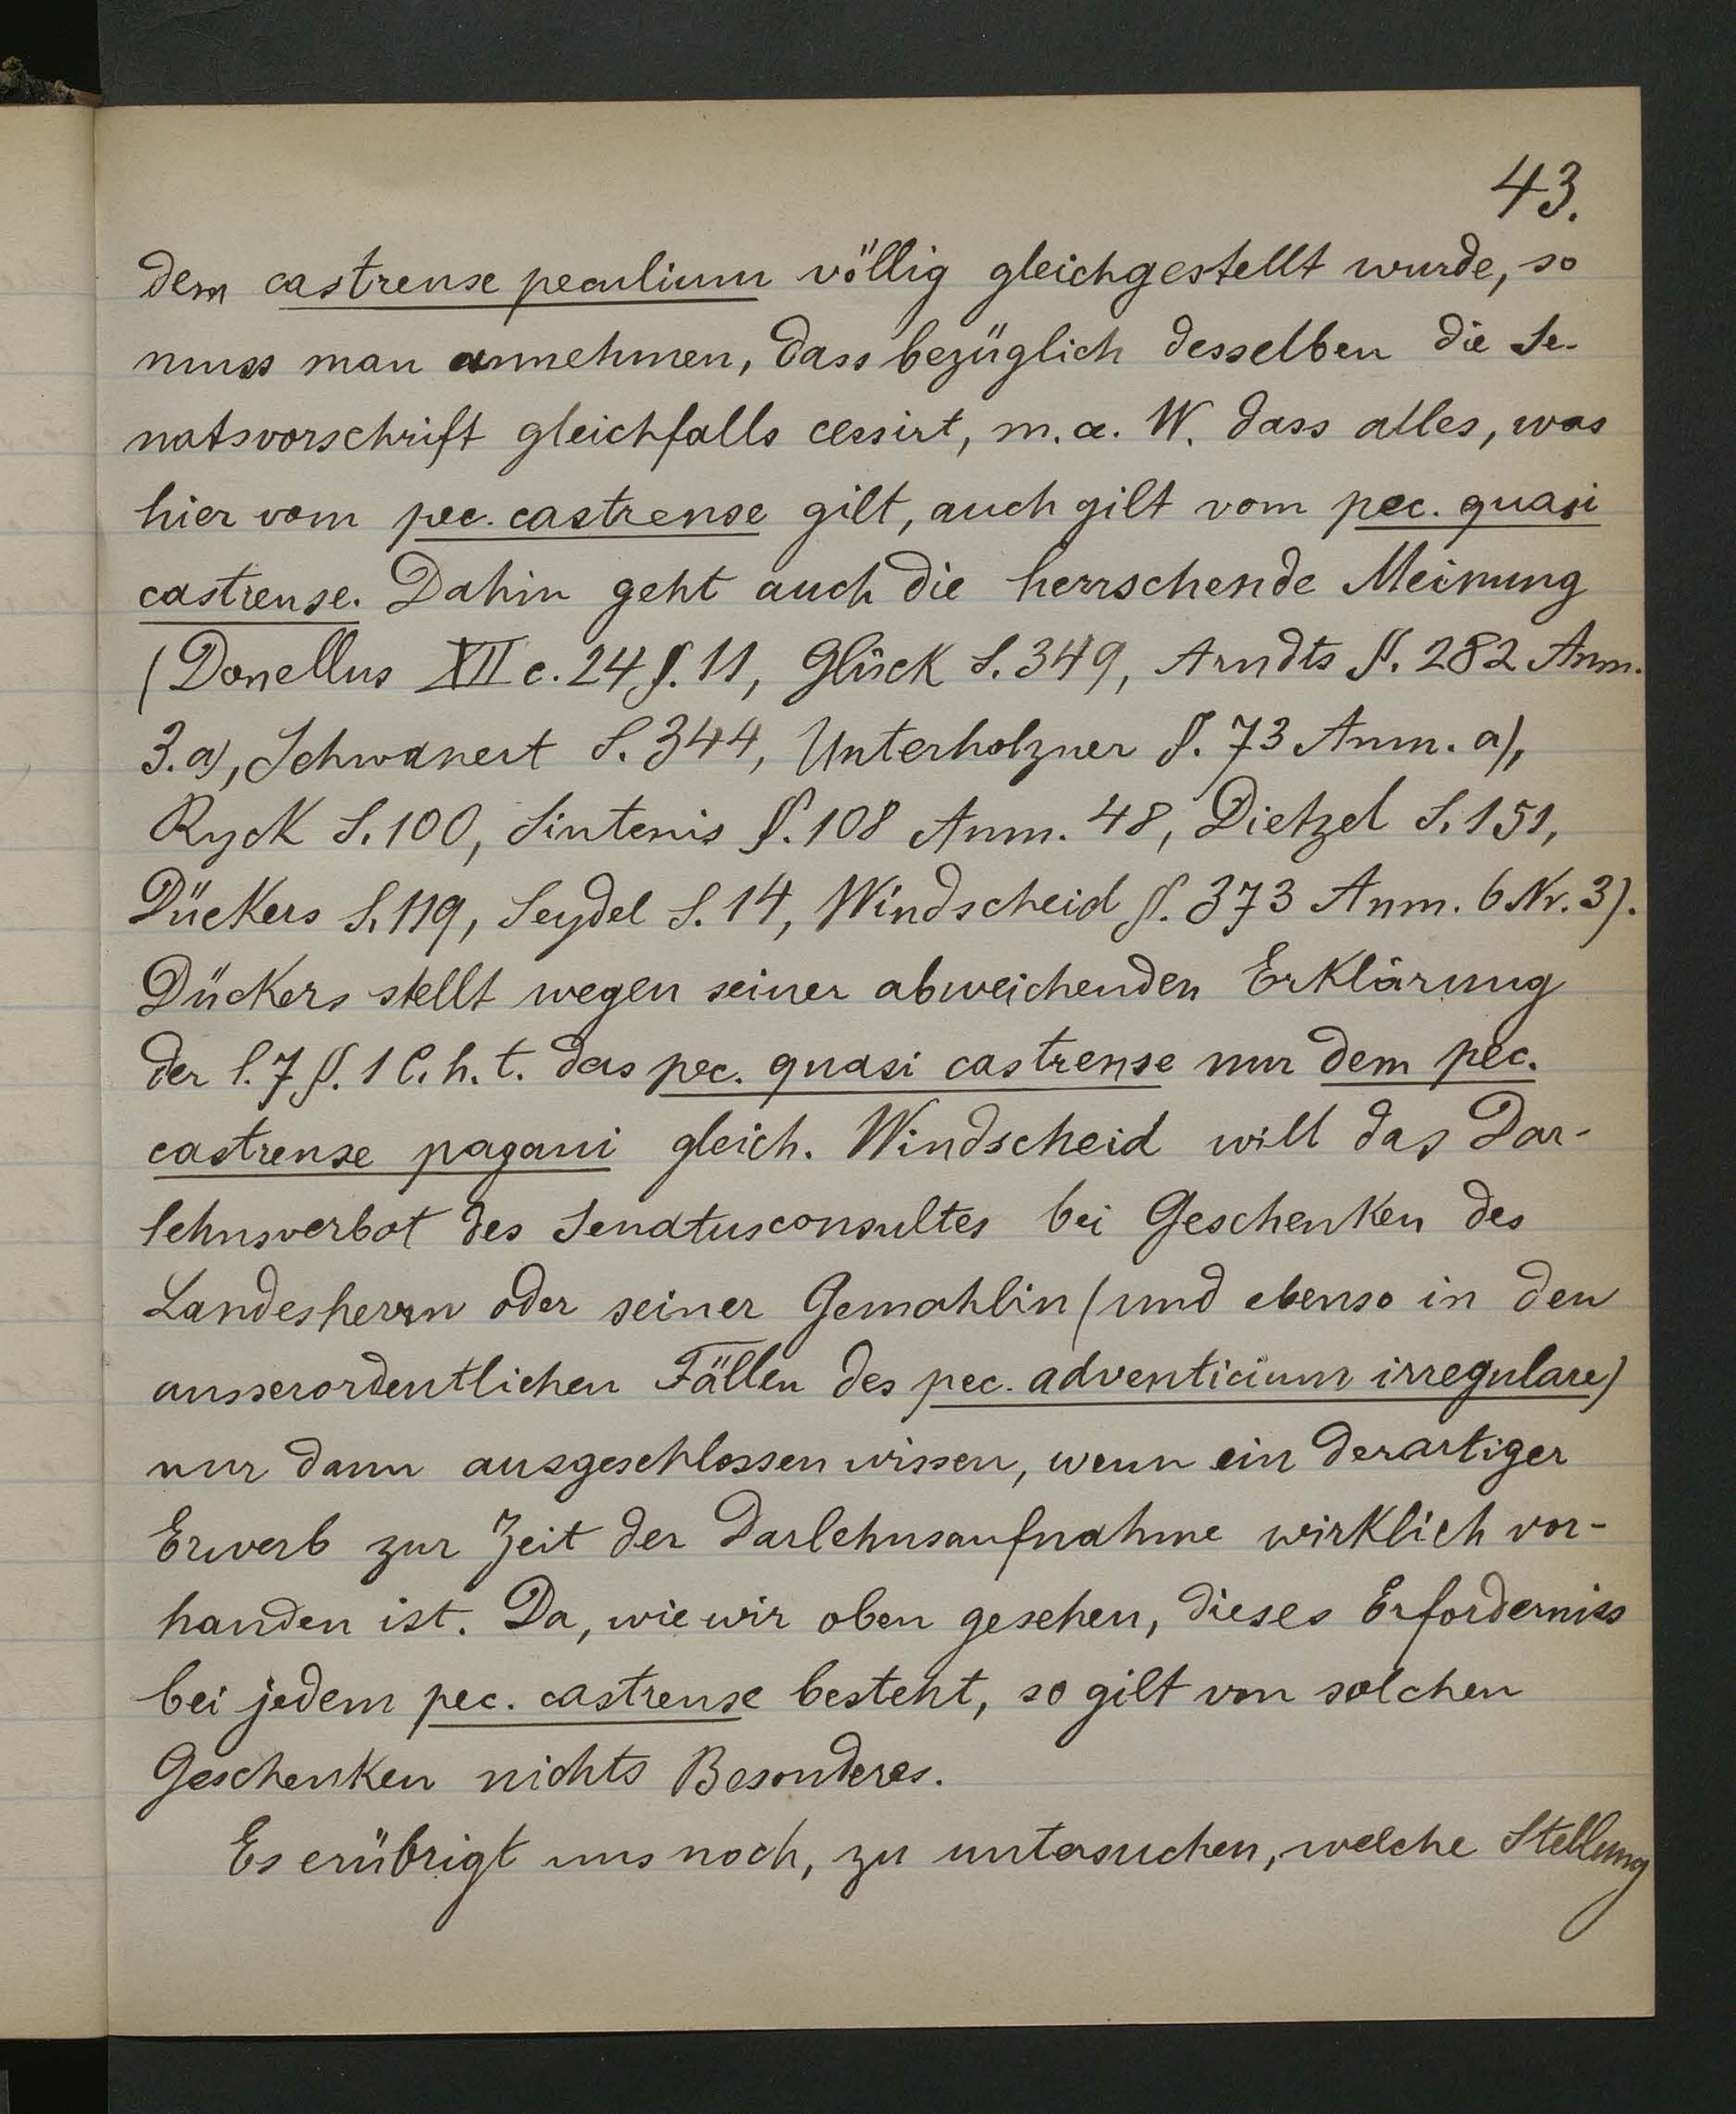 43.
dem castrense peculium völlig gleichgestellt wurde, so
muss man annehmen, dass bezüglich desselben die Se-
natsvorschrift gleichfalls cessirt, m. a. W. dass alles, was
hier vom pec. castrense gilt, auch gilt vom pec. quasi
castrense. Dahin geht auch die herrschende Meinung
(Donellus XII c. 24 §. 11, Glück S. 349, Arndts §. 282 Anm.
3. a), Schwanert S. 344, Unterholzner §. 73 Anm. a),
Ryck S. 100, Sintenis §. 108 Anm. 48, Dietzel S. 151,
Dückers S. 119, Seydel S. 14, Windscheid §. 373 Anm. 6 Nr. 3).
Dückers stellt wegen seiner abweichenden Erklärung
der l. 7 §. 1 C. h. t. das pec. quasi castrense nur dem pec.
castrense pagani gleich. Windscheid will das Dar-
lehnsverbot des Senatusconsultes bei Geschenken des
Landesherrn oder seiner Gemahlin (und ebenso in den
ausserordentlichen Fällen des pec. adventicium irregulare)
nur dann ausgeschlossen wissen, wenn ein derartiger
Erwerb zur Zeit der Darlehnsaufnahme wirklich vor-
handen ist. Da, wie wir oben gesehen, dieses Erforderniss
bei jedem pec. castrense besteht, so gilt von solchen
Geschenken nichts Besonderes.
Es erübrigt uns noch, zu untersuchen, welche Stellung